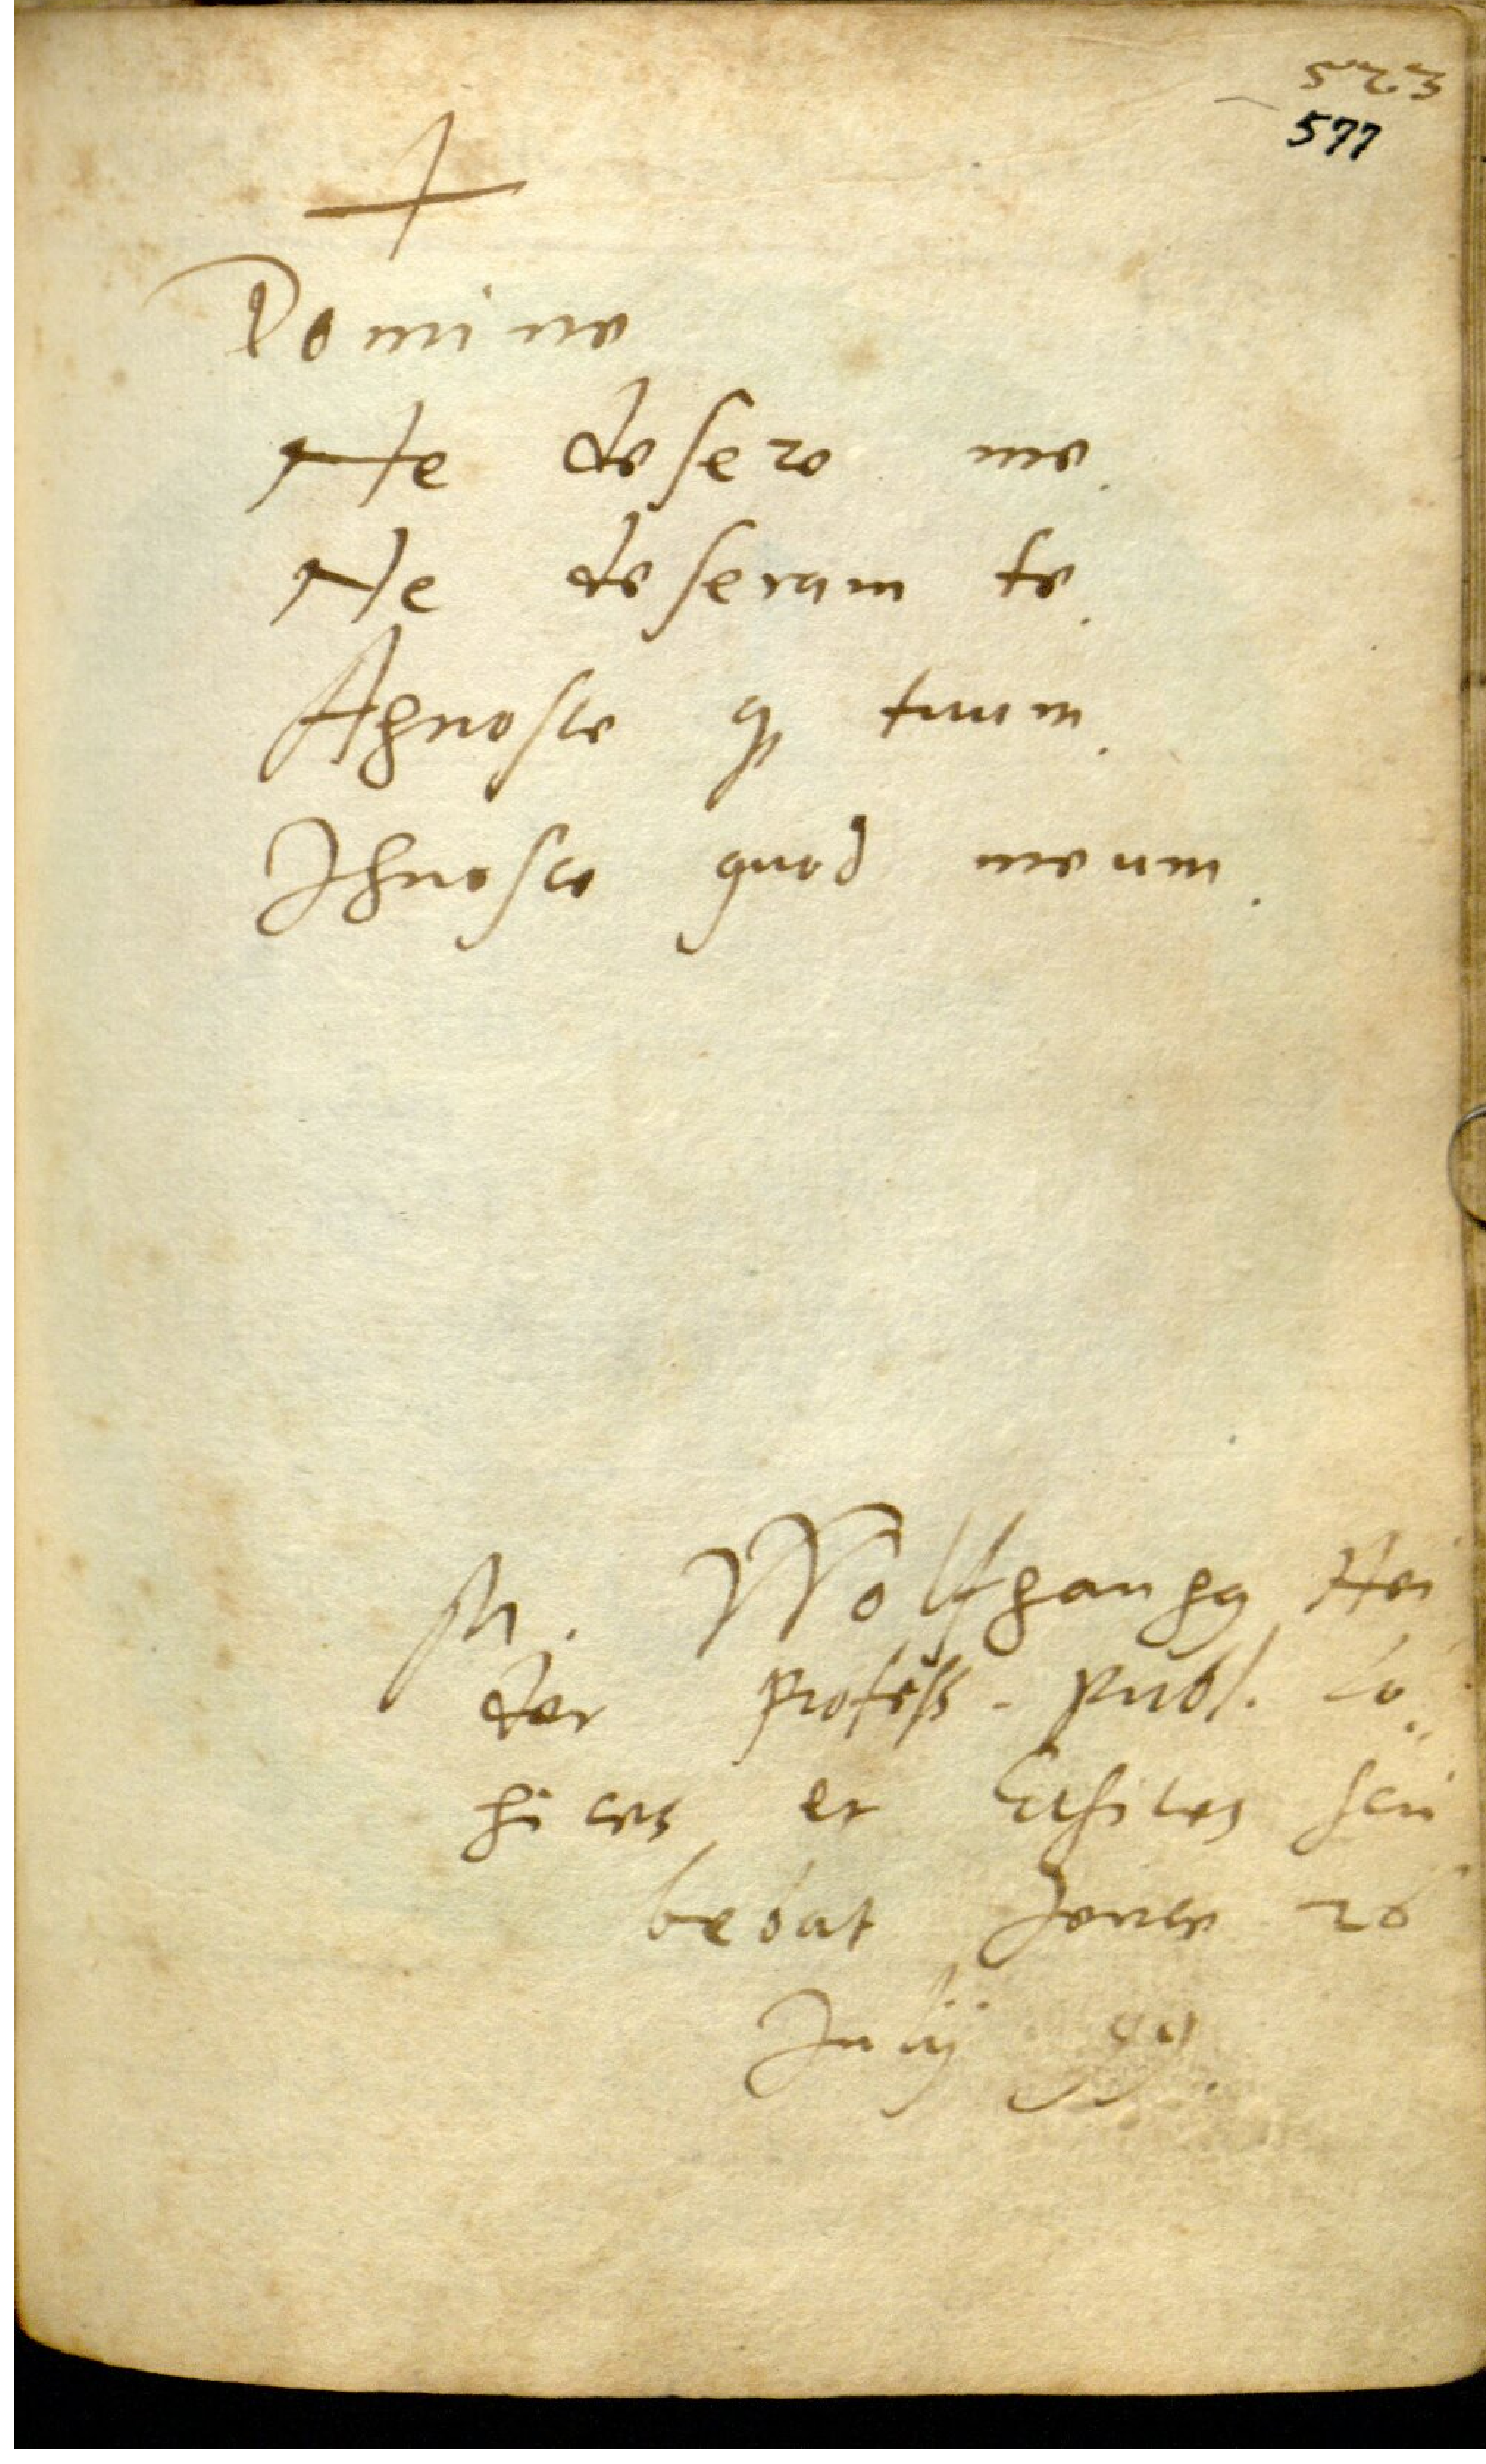 523
577
+
Domine
Ne desere me.
Ne deseram te.
Agnosce q̢ tuum.
Ignosce quod meum.
M. Wolfgangg Hei
der profess. publ. Lo„
gices et Ethices scri
bebat Jenae 26
Julij 99.